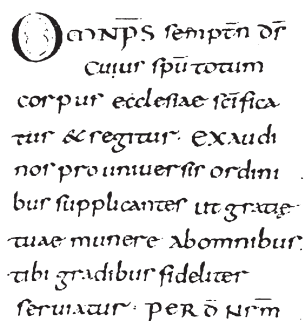 OMNP̄S sempit̄n d̄s
cuius sp̄u totum
corpus ecclesiae sc̄ifica
tur & regitur · exaudi
nos pro universis ordini
bus supplicantes ut gratię
tuae munere ab omnibus
tibi gradibus fideliter
serviatur · PER D̄ NSM̄